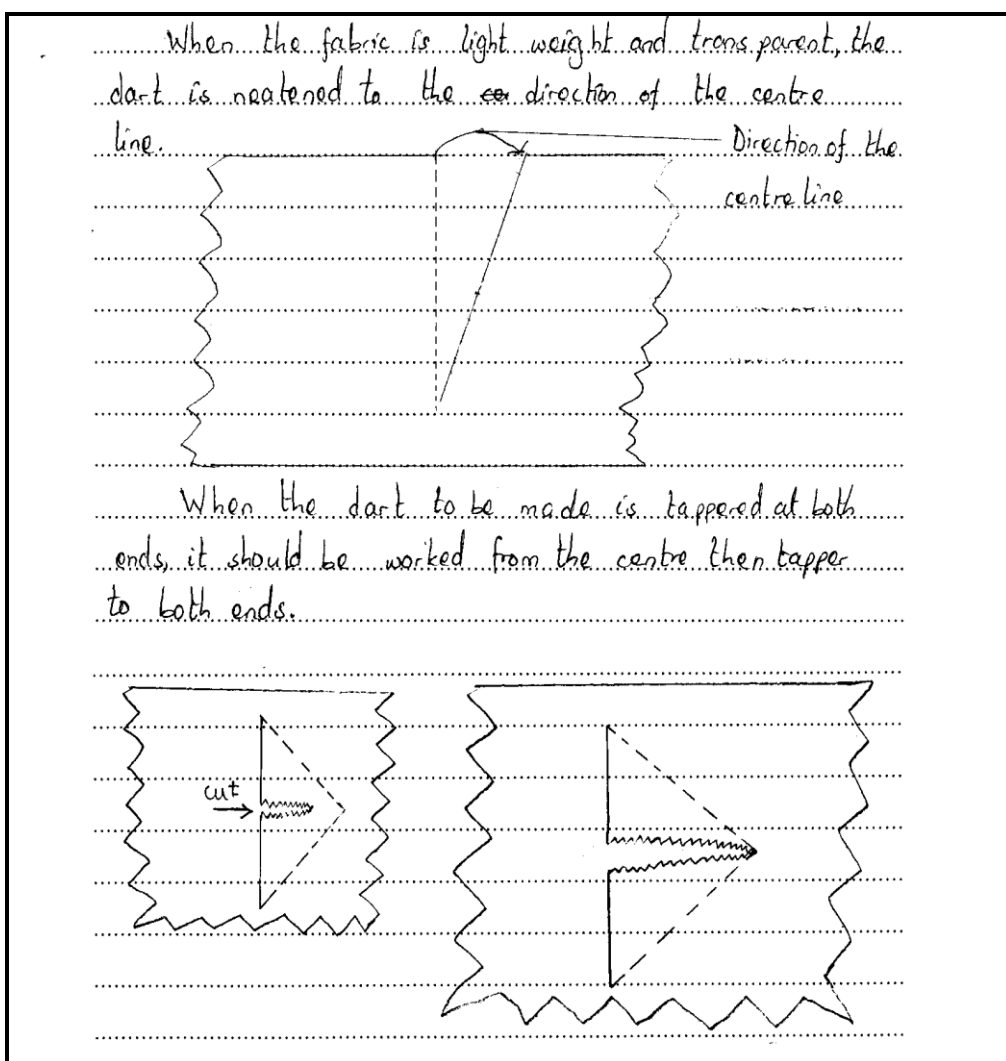 When the fabric is light weight and transparent, the
dart is neatened to the direction of the centre
line.
Direction of the
centre line
When the dart to be made is tappered at both
ends, it should be worked from the centre then tapper
to both ends.
cut